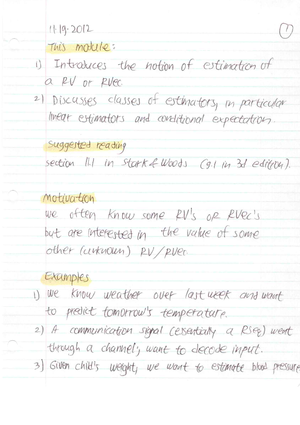 11-19-2012
1
This module:
1) Introduces the notion of estimation of
a RV or RVec
2) Discusses classes of estimators, in particular
linear estimators and conditional expectation.
Suggested reading
section 11.1 in Stark & Woods (9.1 in 3d edition).
Motivation
we often know some RV's OR RVec's
but are interested in the value of some
other (unknown) RV/RVec
Examples
1) we know weather over last week and want
to predict tomorrow's temperature.
2) A communication signal (essentially a RSeq) went
through a channel; want to decode input.
3) Given child's weight, we want to estimate blood pressure